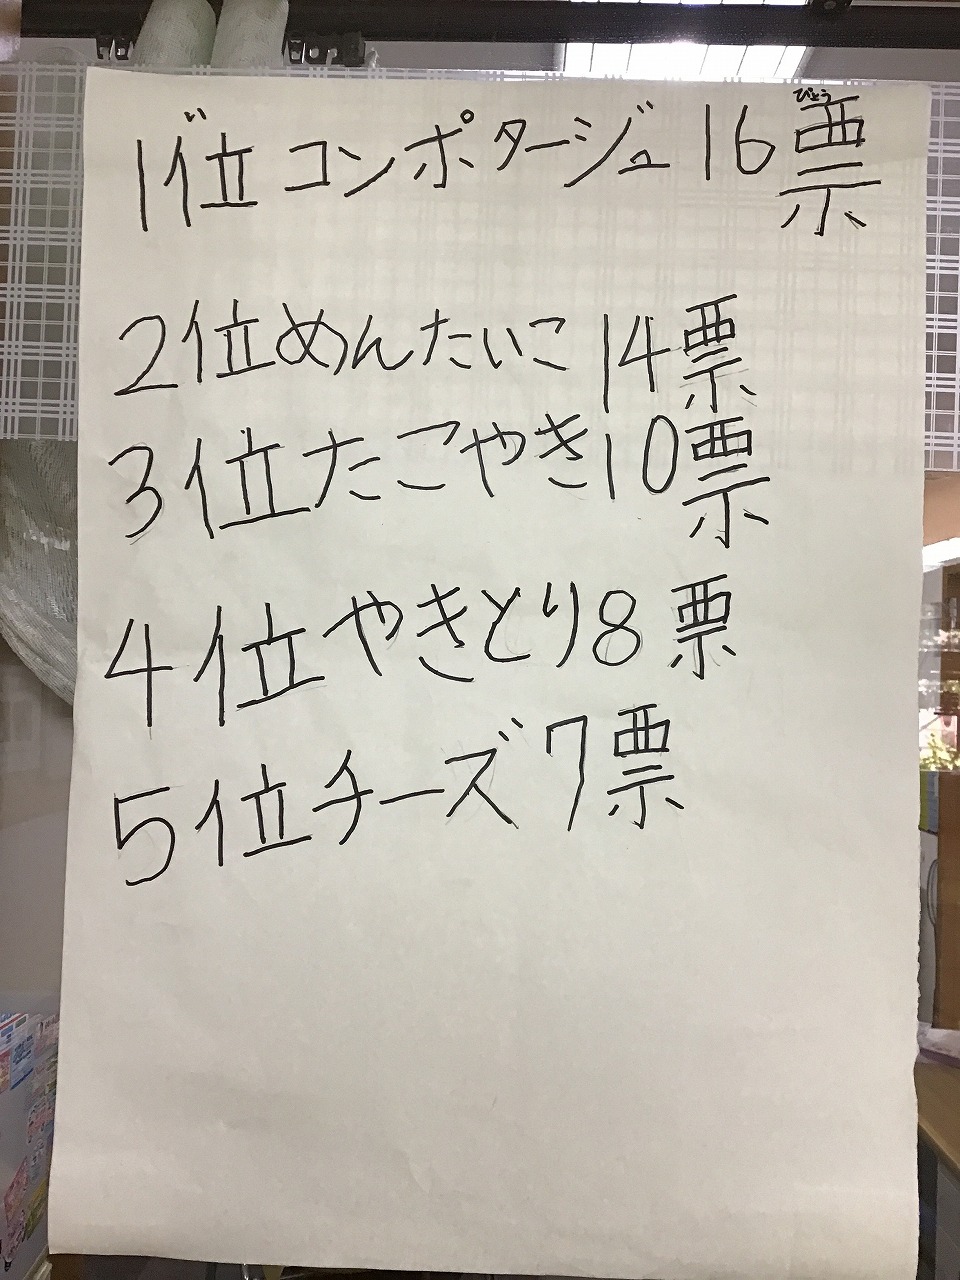 1位 コンポタージュ 16票
2位 めんたいこ 14票
3位 たこやき 10票
4位 やきとり 8票
5位 チーズ 7票